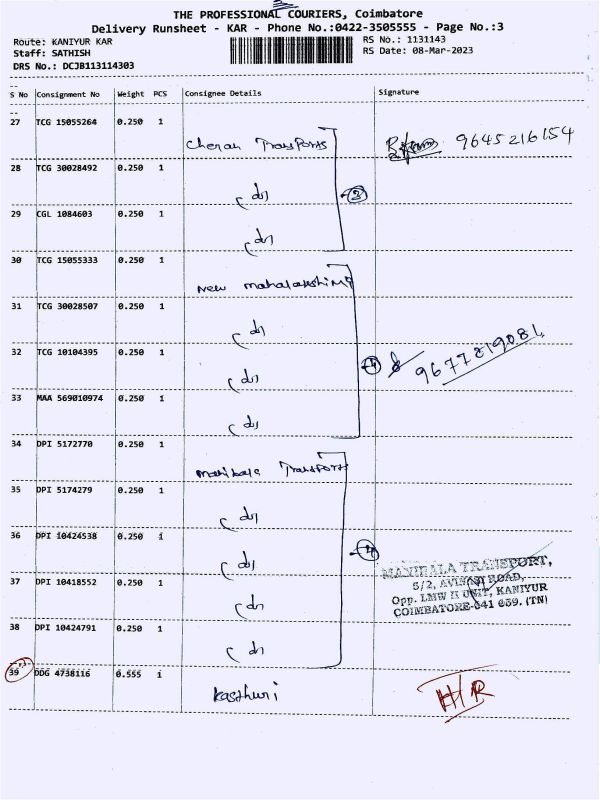 THE PROFESSIONAL COURIERS, Coimbatore
Delivery Runsheet - KAR - Phone No.:0422-3505555 - Page No.:3
Route: KANIYUR KAR
RS No.: 1131143
Staff: SATHISH
RS Date: 08-Mar-2023
DRS No.: DCJB113114303
S No Consignment No Weight PCS Consignee Details Signature
27 TCG 15055264 0.250 1
Cheran Transports 9645216154
28 TCG 30028492 0.250 1
29 CGL 1084603 0.250 1
30 TCG 15055333 0.250 1
New mahalakshmi
31 TCG 30028507 0.250 1
32 TCG 10104395 0.250 1
9677219081
33 MAA 569010974 0.250 1
34 DPI 5172770 0.250 1
Manibala Transports
35 DPI 5174279 0.250 1
36 DPI 10424538 0.250 1
MANIBALA TRANSPORT,
5/2, AVINASI ROAD,
37 DPI 10418552 0.250 1
Opp. LMW II UNIT, KANIYUR
COIMBATORE-641 659. (TN)
38 DPI 10424791 0.250 1
39 DDG 4738116 0.555 1
Kasthuri H/R